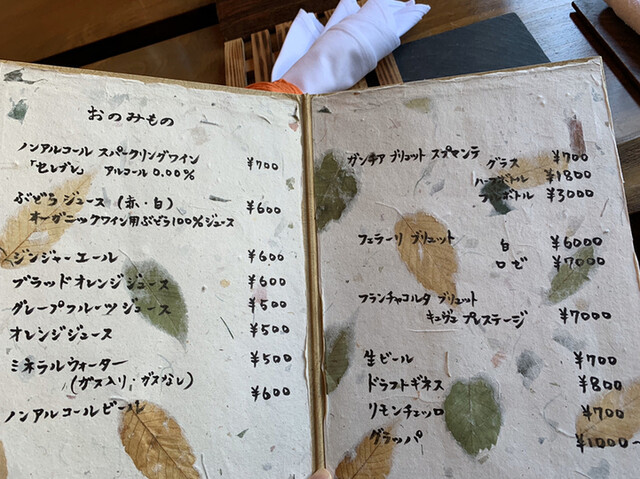 おのみもの
ノンアルコール スパークリングワイン
「セレブレ」 アルコール 0.00% ¥700
ぶどうジュース (赤・白) ¥600
オーガニックワイン用ぶどう100%ジュース
ジンジャーエール ¥600
ブラッドオレンジジュース ¥600
グレープフルーツジュース ¥500
オレンジジュース ¥500
ミネラルウォーター ¥500
(ガス入り・ガスなし)
ノンアルコールビール ¥600
ガンチア ブリュット スプマンテ グラス ¥700
ハーフボトル ¥1800
フルボトル ¥3000
フェラーリ ブリュット 白 ¥6000
ロゼ ¥7000
フランチャコルタ ブリュット
キュヴェ プレステージ ¥7000
生ビール ¥700
ドラフトギネス ¥800
リモンチェッロ ¥700
グラッパ ¥1000~